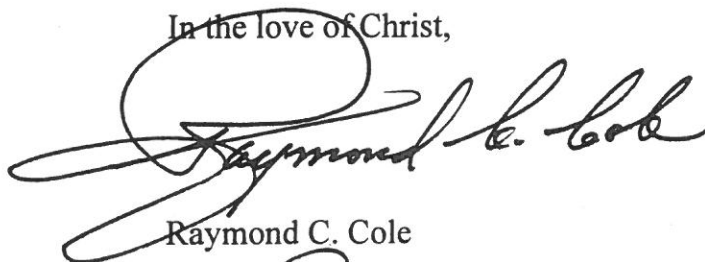 In the love of Christ,
Raymond C. Cole
Raymond C. Cole